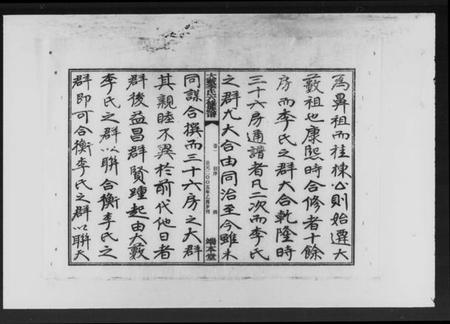 為鼻祖而桂棟公則始遷大
藪祖也康熙時合修者十餘
房而李氏之群大合乾隆時
三十六房通譜者凡二次而李氏
之群尤大合由同治至今雖未
大藪李氏六修族譜
卷一
端本堂
同謀合撰而三十六房之大群
其親睦不異於前代他日者
群後益昌群賢踵起由大藪
李氏之群以聯合衡李氏之
群即可合衡李氏之群以聯大